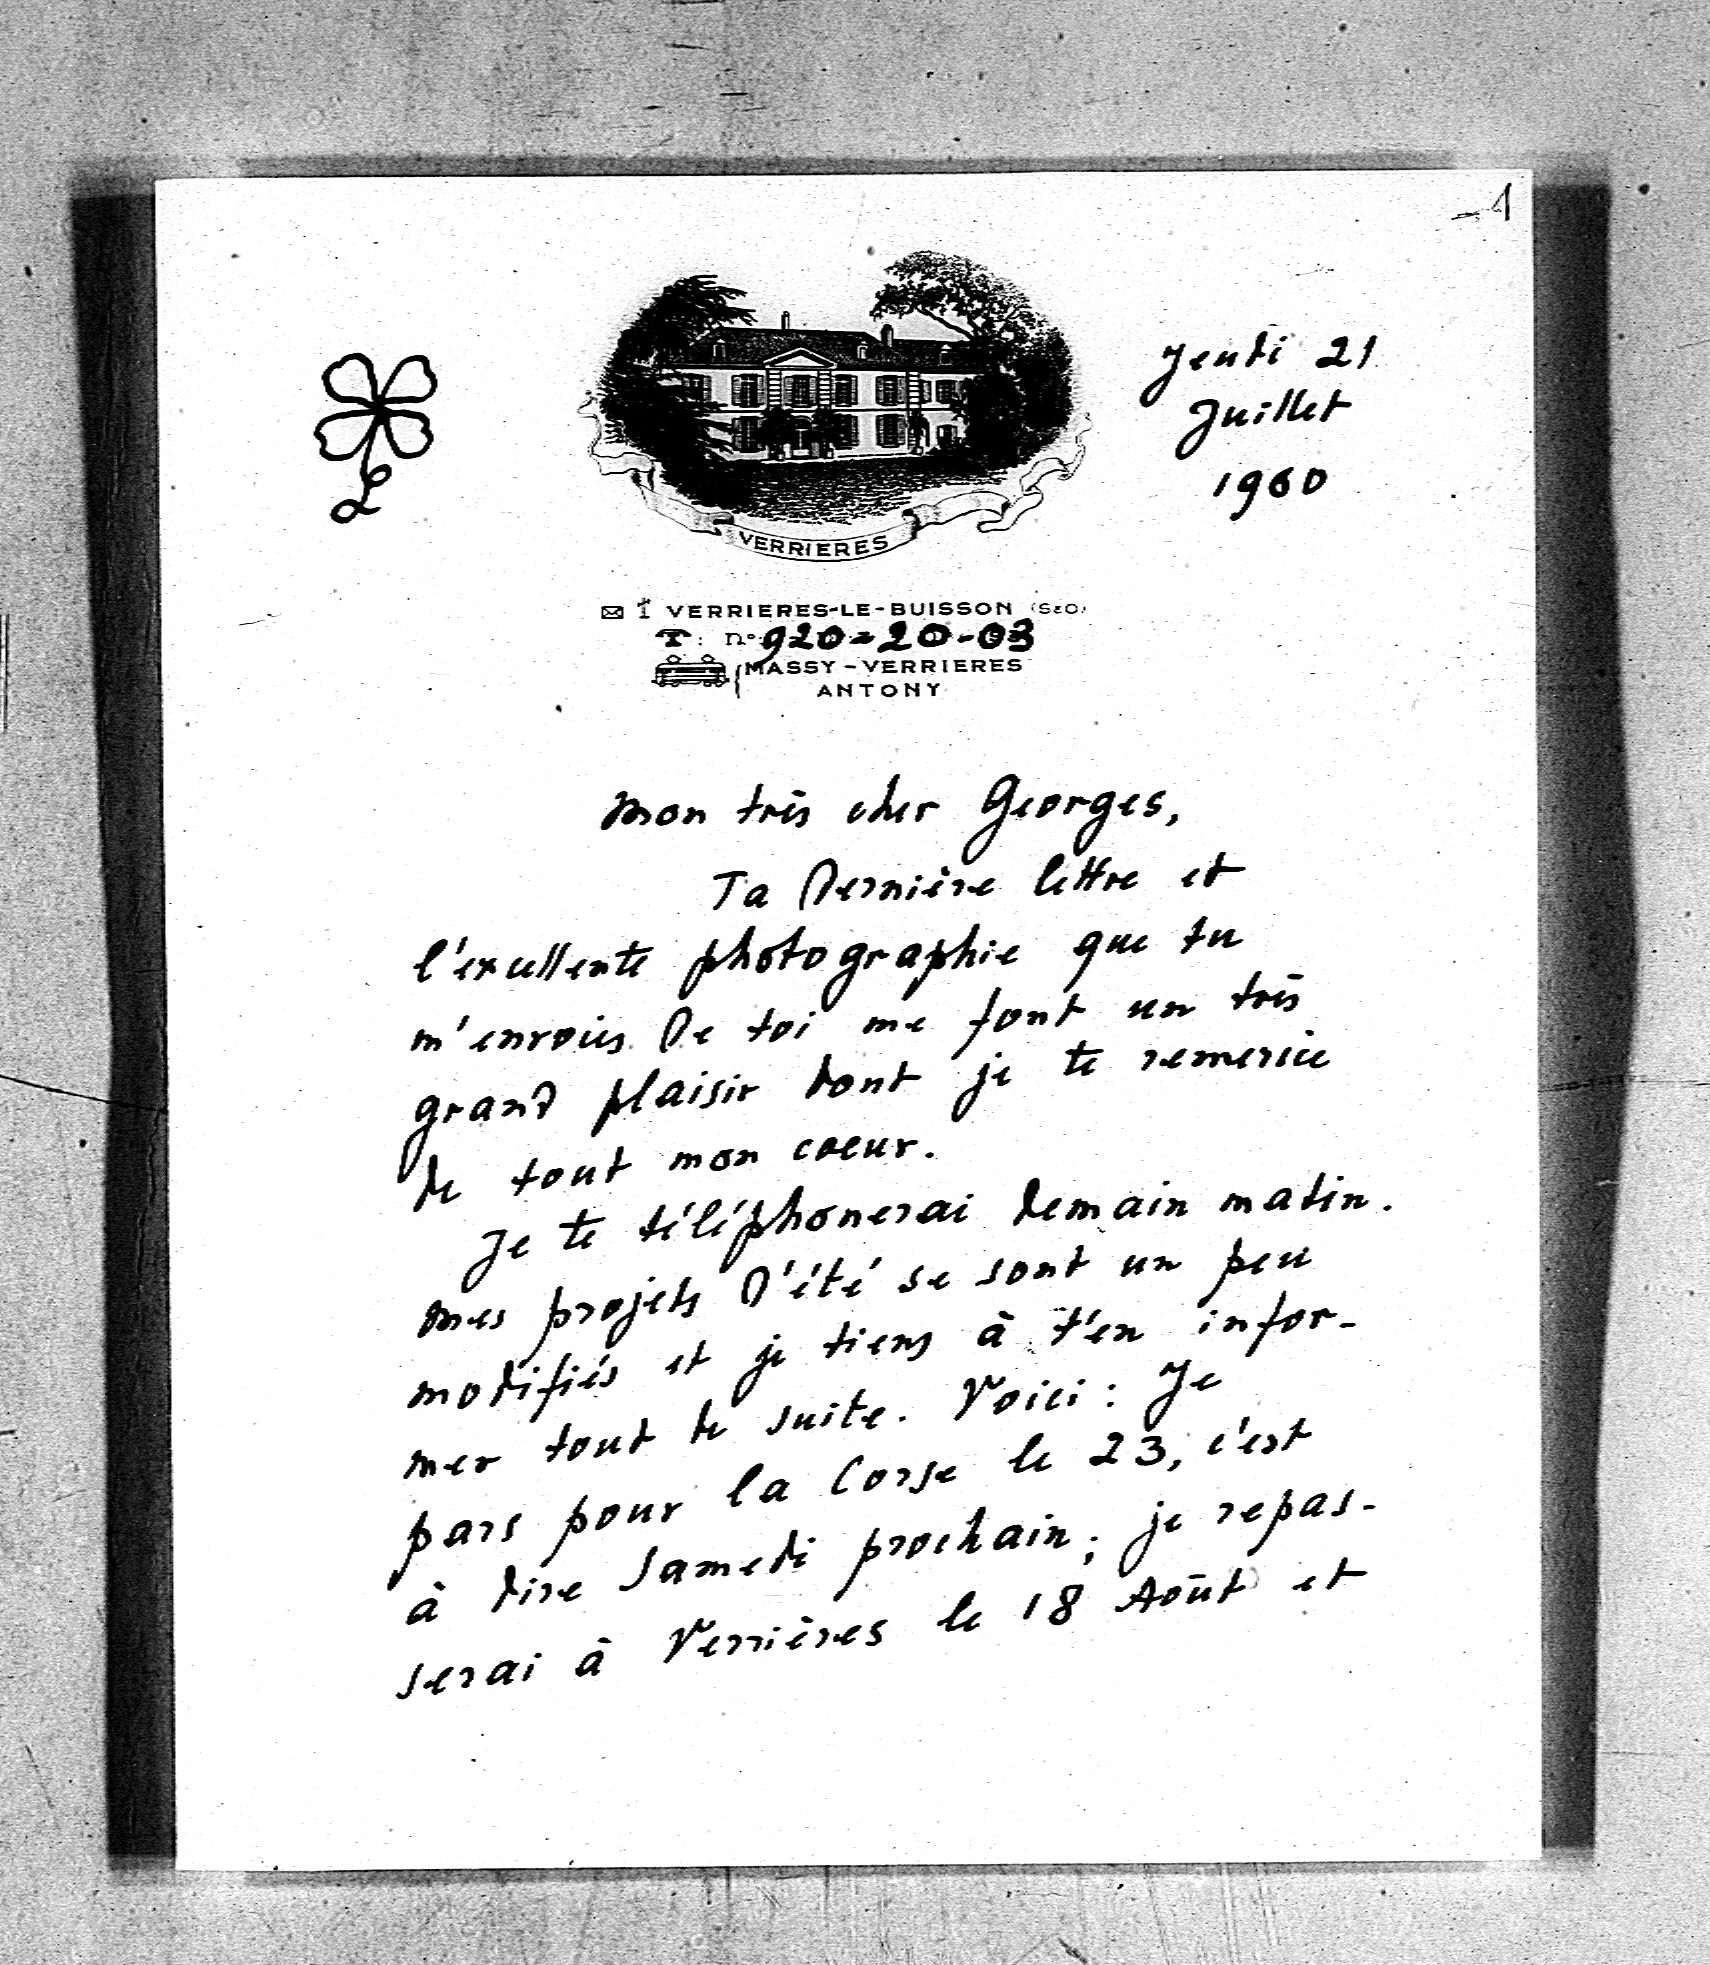 1
Jeudi 21
Juillet
1960
VERRIERES
VERRIERES-LE-BUISSON (S&O)
: n° 920-20-03
MASSY-VERRIERES
ANTONY
Mon très cher Georges,
Ta dernière lettre et
l'excellente photographie que tu
m'envoies de toi me font un très
grand plaisir dont je te remercie
de tout mon coeur.
Je te téléphonerai demain matin.
Mes projets d'été se sont un peu
modifiés et je tiens à t'en infor-
mer tout de suite. Voici : Je
pars pour la Corse le 23, c'est
à dire Samedi prochain ; je repas-
serai à Verrières le 18 Août et